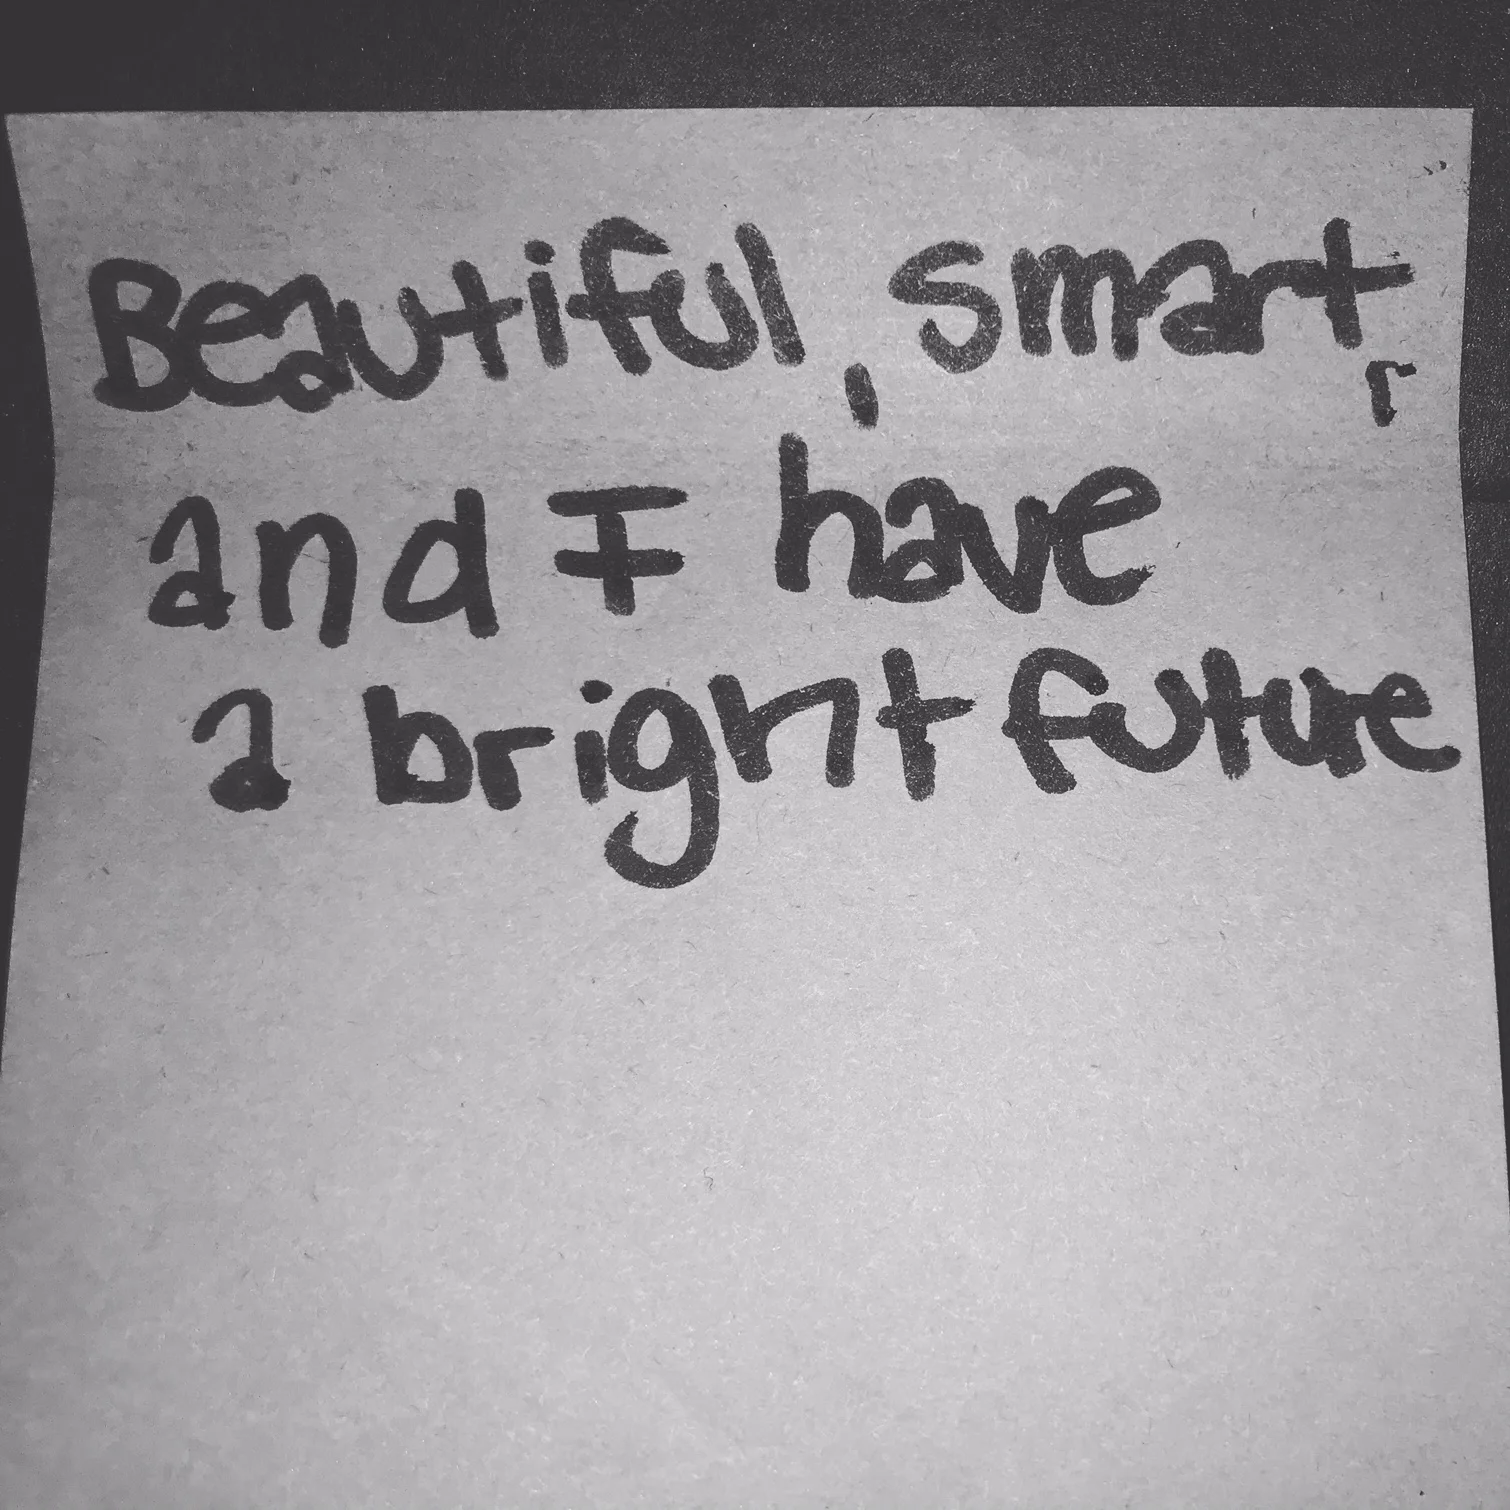 Beautiful, smart,
and I have
a bright future